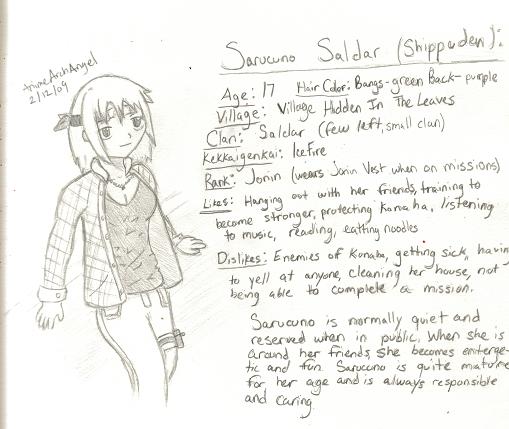 AnimeArchAngel
2/12/09
Sarucuno Saldar (Shippuden):
Age: 17 Hair Color: Bangs-green Back-purple
Village: Village Hidden In The Leaves
Clan: Saldar (few left, small clan)
Kekkaigenkai: IceFire
Rank: Jonin (wears Jonin Vest when on missions)
Likes: Hanging out with her friends, training to
become stronger, protecting Konoha, listening
to music, reading, eatting noodles
Dislikes: Enemies of Konaha, getting sick, having
to yell at anyone, cleaning her house, not
being able to complete a mission.
Sarucuno is normally quiet and
reserved when in public. When she is
around her friends she becomes enterge-
tic and fun. Sarucuno is quite mature
for her age and is always responsible
and caring.